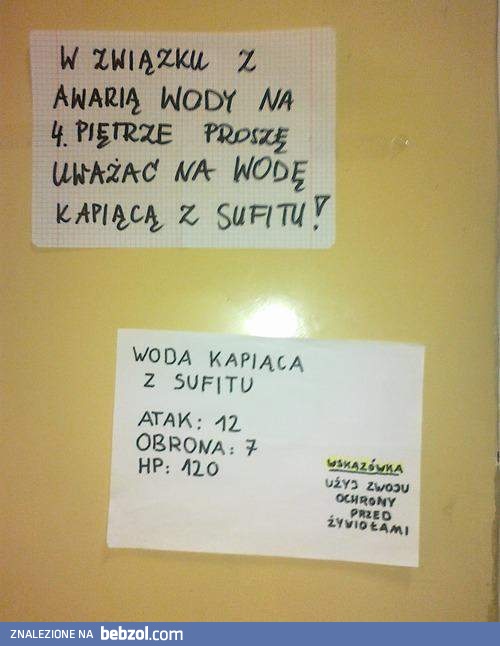 W ZWIĄZKU Z
AWARIĄ WODY NA
4. PIĘTRZE PROSZĘ
UWAŻAĆ NA WODĘ
KAPIĄCĄ Z SUFITU!
WODA KAPIĄCA
Z SUFITU
ATAK: 12
OBRONA: 7
HP: 120
WSKAZÓWKA
UŻYJ ZWOJU
OCHRONY
PRZED
ŻYWIOŁAMI
ZNALEZIONE NA bebzol.com